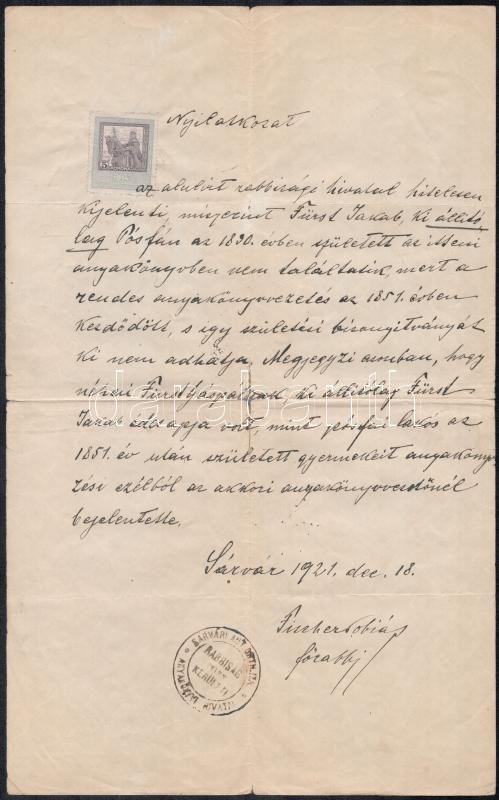 Nyilatkozat
az alulírt rabbisági hivatal hitelesen
kijelenti, miszerint Fürst Jakab, ki állító
lag Pósfán az 1830. évben született az itteni
anyakönyvben nem találtatik, mert a
rendes anyakönyvvezetés az 1851. évben
kezdődött, s így születési bizonyítványát
ki nem adhatja. Megjegyzi azonban, hogy
néhai Fürst Gáspárnak, ki állitolag Fürst
édesapja volt, mint pósfai lakós az
1851. év után született gyermekeit anyaköny
zési czélból az akkori anyakönyvvezetőnél
bejelentette.
Sárvár 1921. dec. 18.
Fischer Tobiás
főrabbi
SÁRVÁRI AUT. ORTH. IZR.
RABBISÁG
KERÜLETI
HIVATAL
5
darabanth